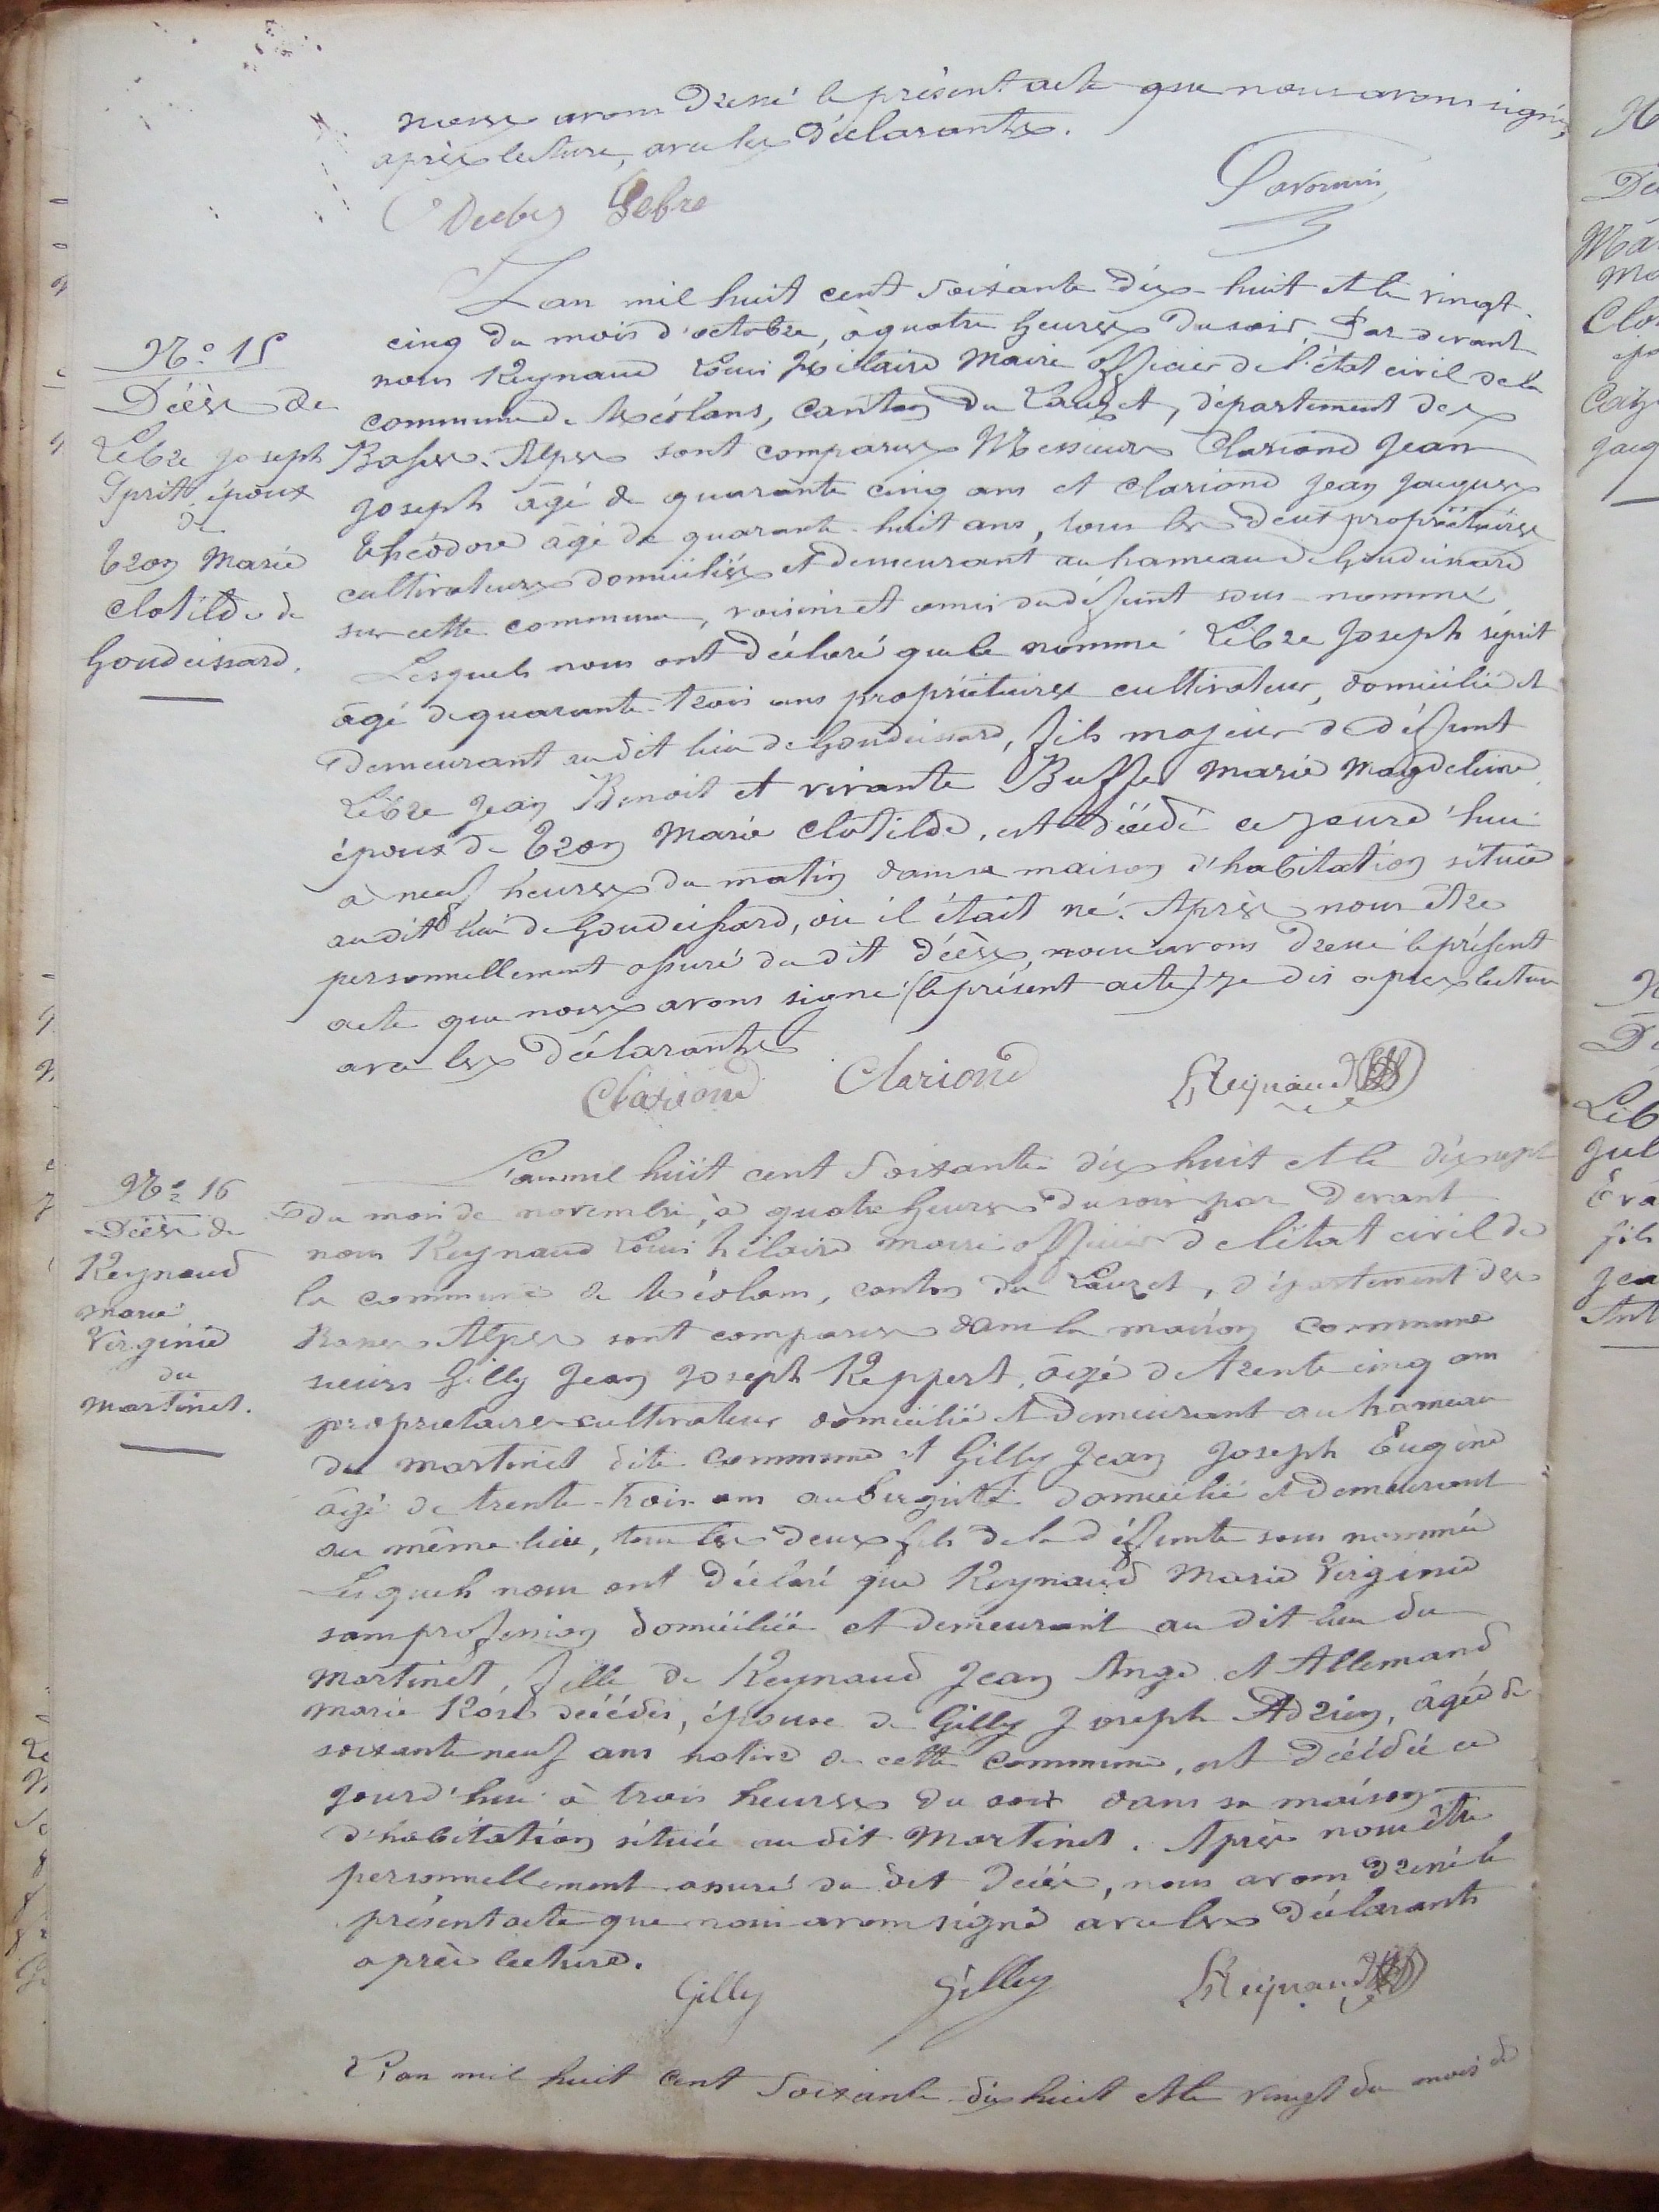 nous avons dressé le présent acte que nous avons signé,
après lecture, avec les déclarants.
Lebre
Savornin
L'an mil huit cent soixante dix-huit et le vingt-
cinq du mois d'octobre, à quatre heures du soir, Par devant
nous Reynaud Louis Hilaire Maire officier de l'état civil de la
commune de Méolans, canton du Lauzet, département des
Basses-Alpes sont comparus Messieurs Clariond Jean
Joseph âgé de quarante cinq ans et Clariond Jean Jacques
Théodore âgé de quarante-huit ans, tous les deux propriétaires
cultivateurs domiciliés et demeurant au hameau de Goudeissard
sur cette commune, voisins et amis du défunt sous-nommé
Lesquels nous ont déclaré que le nommé Lèbre Joseph Sprit
âgé de quarante-trois ans propriétaire cultivateur, domicilié et
demeurant au dit lieu de Goudeissard, fils majeur de défunt
Lèbre Jean Benoit et vivante Buffe Marie Magdeleine
époux de Tron Marie Clotilde, est décédé ce jourd'hui
à neuf heures du matin dans sa maison d'habitation située
au dit lieu de Goudeissard, où il était né. Après nous être
personnellement assuré du dit décès, nous avons dressé le présent
acte que nous avons signé (le présent acte) je dis après lecture
avec les déclarants
Clariond Clariond LReynaud
N.° 15
Décès de
Lèbre Joseph
Sprit époux
de
Tron Marie
Clotilde de
Goudeissard.
L'an mil huit cent soixante dix huit et le dix sept
du mois de novembre, à quatre heures du soir par devant
nous Reynaud Louis hilaire maire officier de l'état civil de
la commune de Méolans, canton du Lauzet, département des
Basses Alpes sont comparus dans la maison commune
sieurs Gilly Jean Joseph Reppert, âgé de trente cinq ans
propriétaire cultivateur domicilié et demeurant au hameau
du martinet dite commune et Gilly Jean Joseph Eugène
âgé de trente-trois ans aubergiste domicilié et demeurant
au même lieu, tous les deux fils de la défunte sous nommée
Lesquels nous ont déclaré que Reynaud Marie Virginie
sans profession domiciliée et demeurant au dit lieu du
Martinet, fille de Reynaud Jean Ange et Allemand
Marie Rose décédés, épouse de Gilly Joseph Adrien, âgée de
soixante neuf ans native de cette commune, est décédée ce
jourd'hui à trois heures du soir dans sa maison
d'habitation située au dit Martinet. Après nous être
personnellement assuré du dit décès, nous avons dressé le
présent acte que nous avons signé avec les déclarants
après lecture.
Gilly Gilly LReynaud
N.° 16
Décès de
Reynaud
Marie
Virginie
du
Martinet.
L'an mil huit cent soixante-dix huit et le vingt du mois de